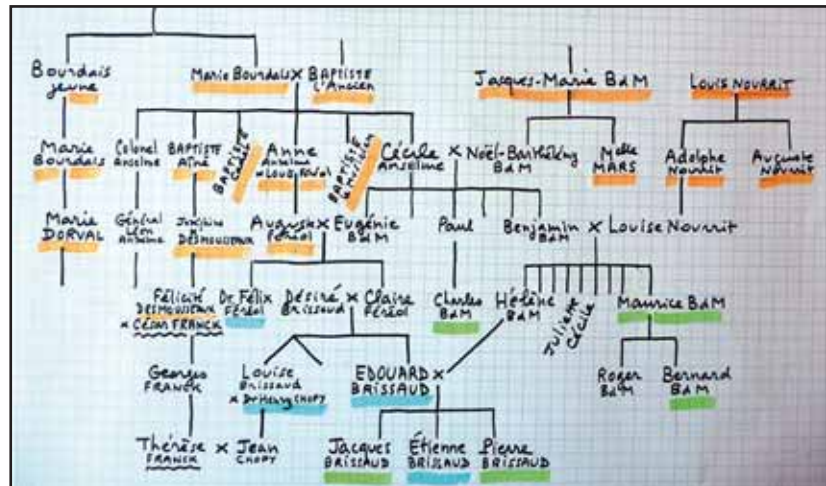 Bourdais
jeune
Marie Bourdais x BAPTISTE
l'Ancien
Jacques-Marie BdM
Louis NOURRIT
Marie
Bourdais
Colonel
Anselme
BAPTISTE
Aîné
BAPTISTE
Anne
Anselme
x Louis FÉRÉOL
BAPTISTE
Cécile
ANSELME
x Noël-Barthélémy
BdM
Melle
MARS
Adolphe
Nourrit
Auguste
Nourrit
Marie
DORVAL
Général
Léon
Anselme
Joséphine
DESMOUSSEAUX
Auguste x Eugénie
FÉRÉOL BdM
Paul
Benjamin x Louise Nourrit
BdM
Félicité
DESMOUSSEAUX
x CÉSAR FRANCK
Dr Félix
FÉRÉOL
Désiré x Claire
Brissaud Féréol
Charles
BdM
Hélène
BdM
Juliette
Cécile
Maurice BdM
Georges
FRANCK
Louise
Brissaud
x Dr Henry CHOPY
EDOUARD x
BRISSAUD
Roger
BdM
Bernard
BdM
Thérèse x Jean
FRANCK CHOPY
Jacques
BRISSAUD
Étienne
BRISSAUD
Pierre
BRISSAUD